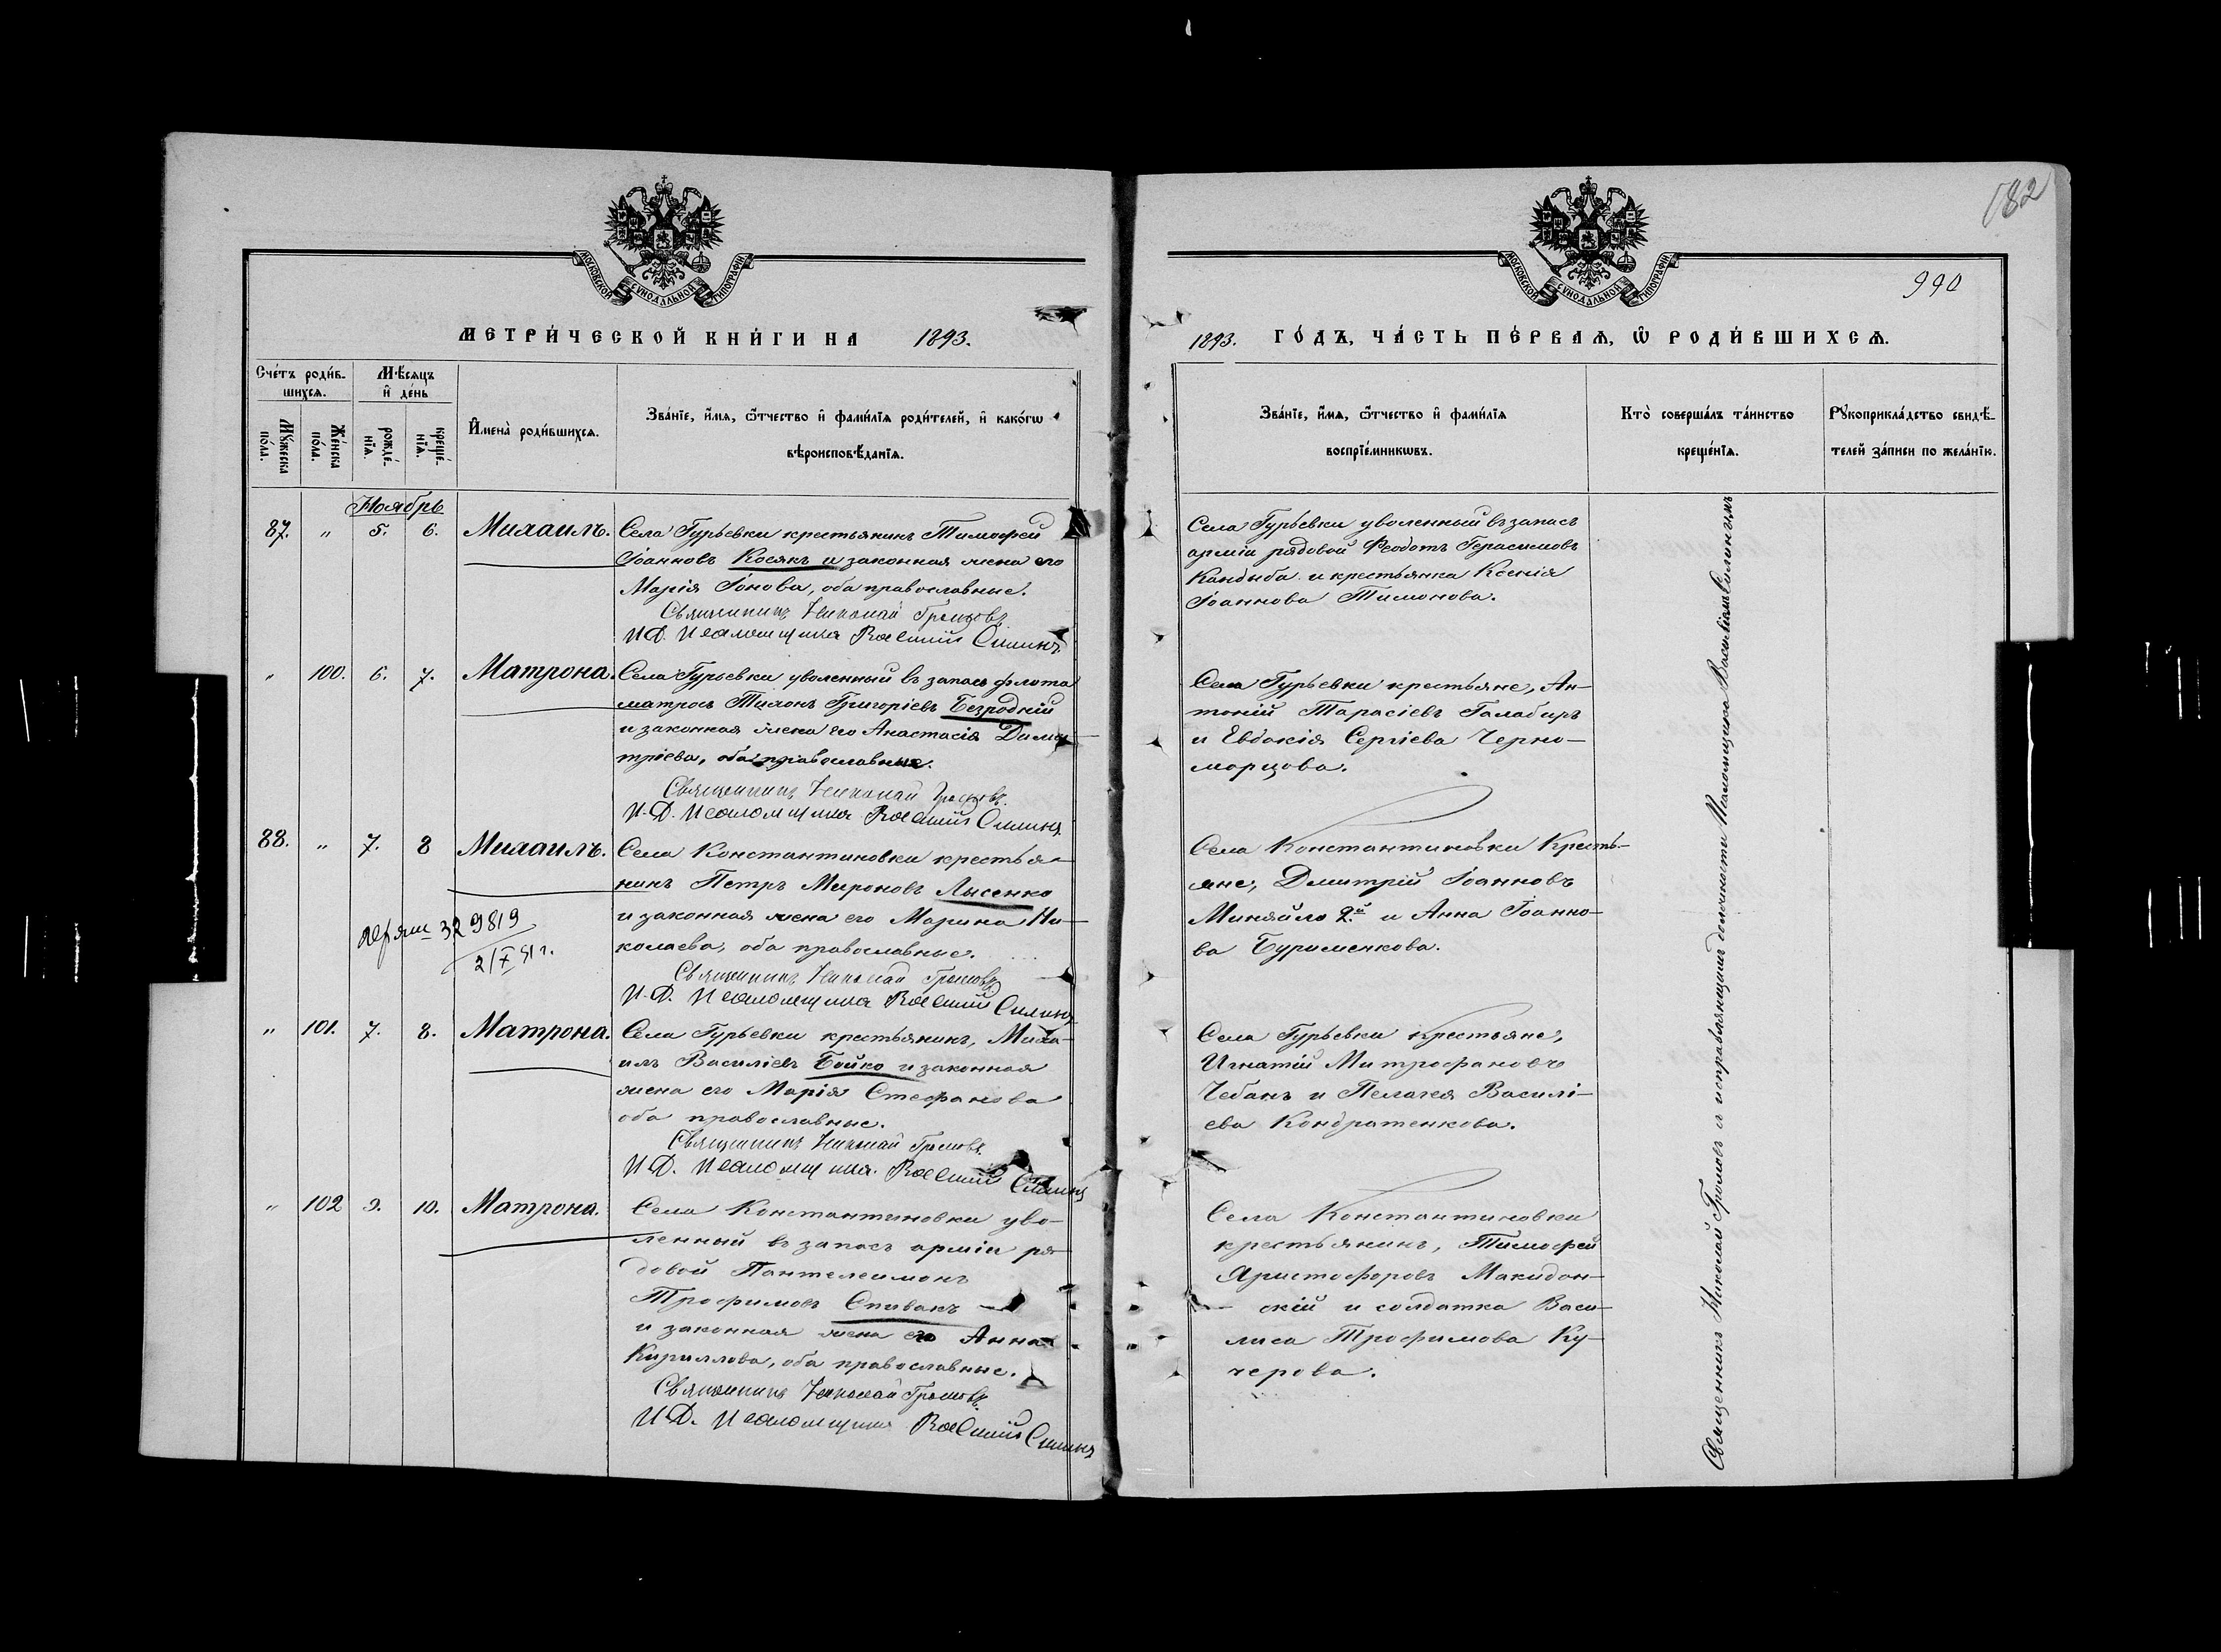 182
990
МОСКОВСКОЙ СУНОДАЛЬНОЙ ТИПОГРАФИИ
МОСКОВСКОЙ СУНОДАЛЬНОЙ ТИПОГРАФИИ
МЕТРИ́ЧЕСКОЙ КНИ́ГИ НА 1893.
Сче́тъ роди́в-
шихсѧ.
Мѣ́сѧцъ
и҆ де́нь
Мꙋ́жеска
по́ла.
Же́нска
по́ла.
рожде́-
нїѧ.
креще́-
нїѧ.
И҆мена̀ роди́вшихсѧ.
Зва́нїе, и҆́мѧ, ѻ҆́тчество и҆ фами́лїѧ роди́телей, и҆ како́гѡ
вѣроисповѣ́данїѧ.
Ноябрь
87. " 5. 6. Михаилъ. Села Гурьевки крестьянинъ Тимофей
Іоанновъ Косякъ и законная жена его
Марія Іонова, оба православные.
Священникъ Николай Громовъ
И. Д. Псаломщика Василий Силинъ
" 100. 6. 7. Матрона. Села Гурьевки уволенный въ запасъ флота
матросъ Тихонъ Григоріевъ Безродній
и законная жена его Анастасія Дими-
тріева, оба православные.
Священникъ Николай Громовъ.
И. Д. Псаломщика Василий Силинъ
88. " 7. 8 Михаилъ. Села Константиновки крестья-
нинъ Петръ Мироновъ Лысенко
и законная жена его Марина Ни-
колаева, оба православные.
Священникъ Николай Громовъ
И. Д. Псаломщика Василий Силинъ
329819
2/X 51 г.
" 101. 7. 8. Матрона. Села Гурьевки крестьянинъ, Миха-
илъ Василіевъ Бойко и законная
жена его Марія Стефанова
оба православные.
Священникъ Николай Громовъ.
И. Д. Псаломщика Василий Силинъ
" 102 9. 10. Матрона. Села Константиновки уво-
ленный въ запасъ арміи ря-
довой Пантелеимонъ
Трофимовъ Спивакъ
и законная жена его Анна
Кириллова, оба православные.
Священникъ Николай Громовъ.
И. Д. Псаломщика Василий Силинъ
1893. ГО́ДЪ, ЧА́СТЬ ПЕ́РВАѦ, Ѡ҆ РОДИ́ВШИХСѦ.
Зва́нїе, и҆́мѧ, ѻ҆́тчество и҆ фами́лїѧ
воспрїе́мникѡвъ.
Кто̀ соверша́лъ та́инство
креще́нїѧ.
Рꙋкоприкла́дство свидѣ́-
телей за́писи по жела́нїю.
Села Гурьевки уволенный въ запасъ
арміи рядовой Феодотъ Герасимовъ
Кандыба и крестьянка Ксенія
Іоаннова Тимонова.
Села Гурьевки крестьяне, Ан-
тоній Тарасіевъ Галабиръ
и Евдокія Сергіева Черно-
морцова.
Села Константиновки Кресть-
яне, Дмитрій Іоанновъ
Миняйло 2.й и Анна Іоанно-
ва Бурименкова.
Села Гурьевки крестьяне,
Игнатій Митрофановъ
Чебанъ и Пелагея Василі-
ева Кондратенкова.
Села Константиновки
крестьянинъ, Тимофей
Аристофоровъ Македон-
скій и солдатка Васи-
лиса Трофимова Ку-
черова.
Священникъ Николай Громовъ и исправляющій должность Псаломщика Василій Силинъ